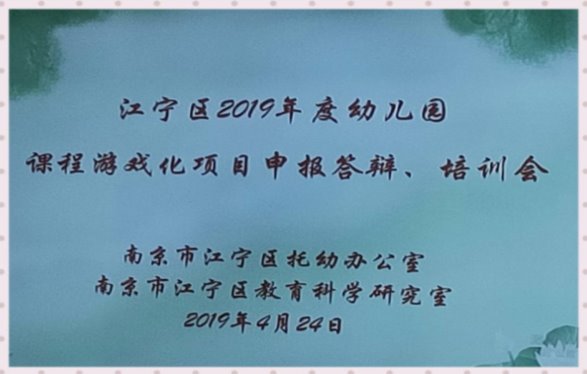 江宁区2019年度幼儿园
课程游戏化项目申报答辩、培训会
南京市江宁区托幼办公室
南京市江宁区教育科学研究室
2019年4月24日